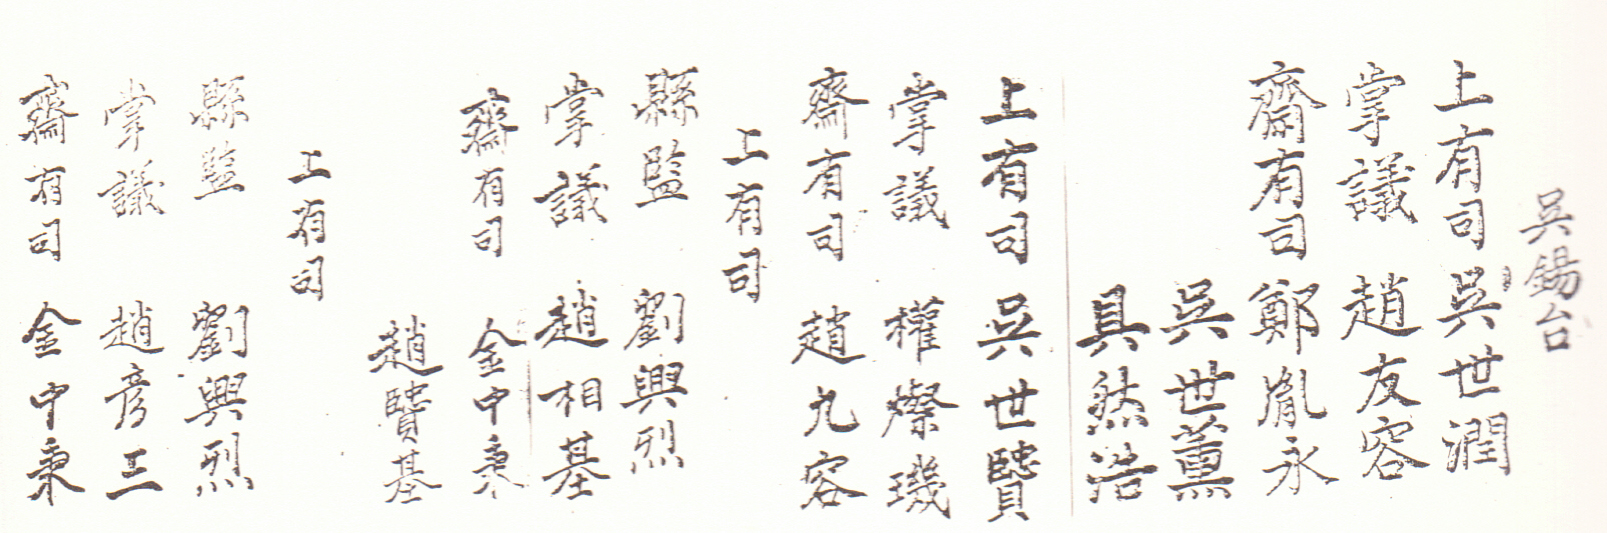 吳錫台
上有司 吳世潤
掌議 趙友容
齋有司 鄭胤永
吳世薰
具然浩
上有司 吳世賢
掌議 權燦璣
齋有司 趙九容
上有司
縣監 劉興烈
掌議 趙相基
齋有司 金中秉
趙贊基
上有司
縣監 劉興烈
掌議 趙彦三
齋有司 金中秉